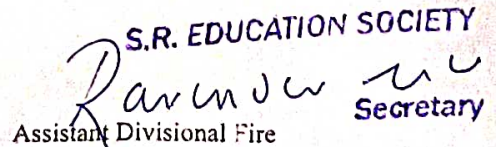 S.R. EDUCATION SOCIETY
Secretary
Assistant Divisional Fire